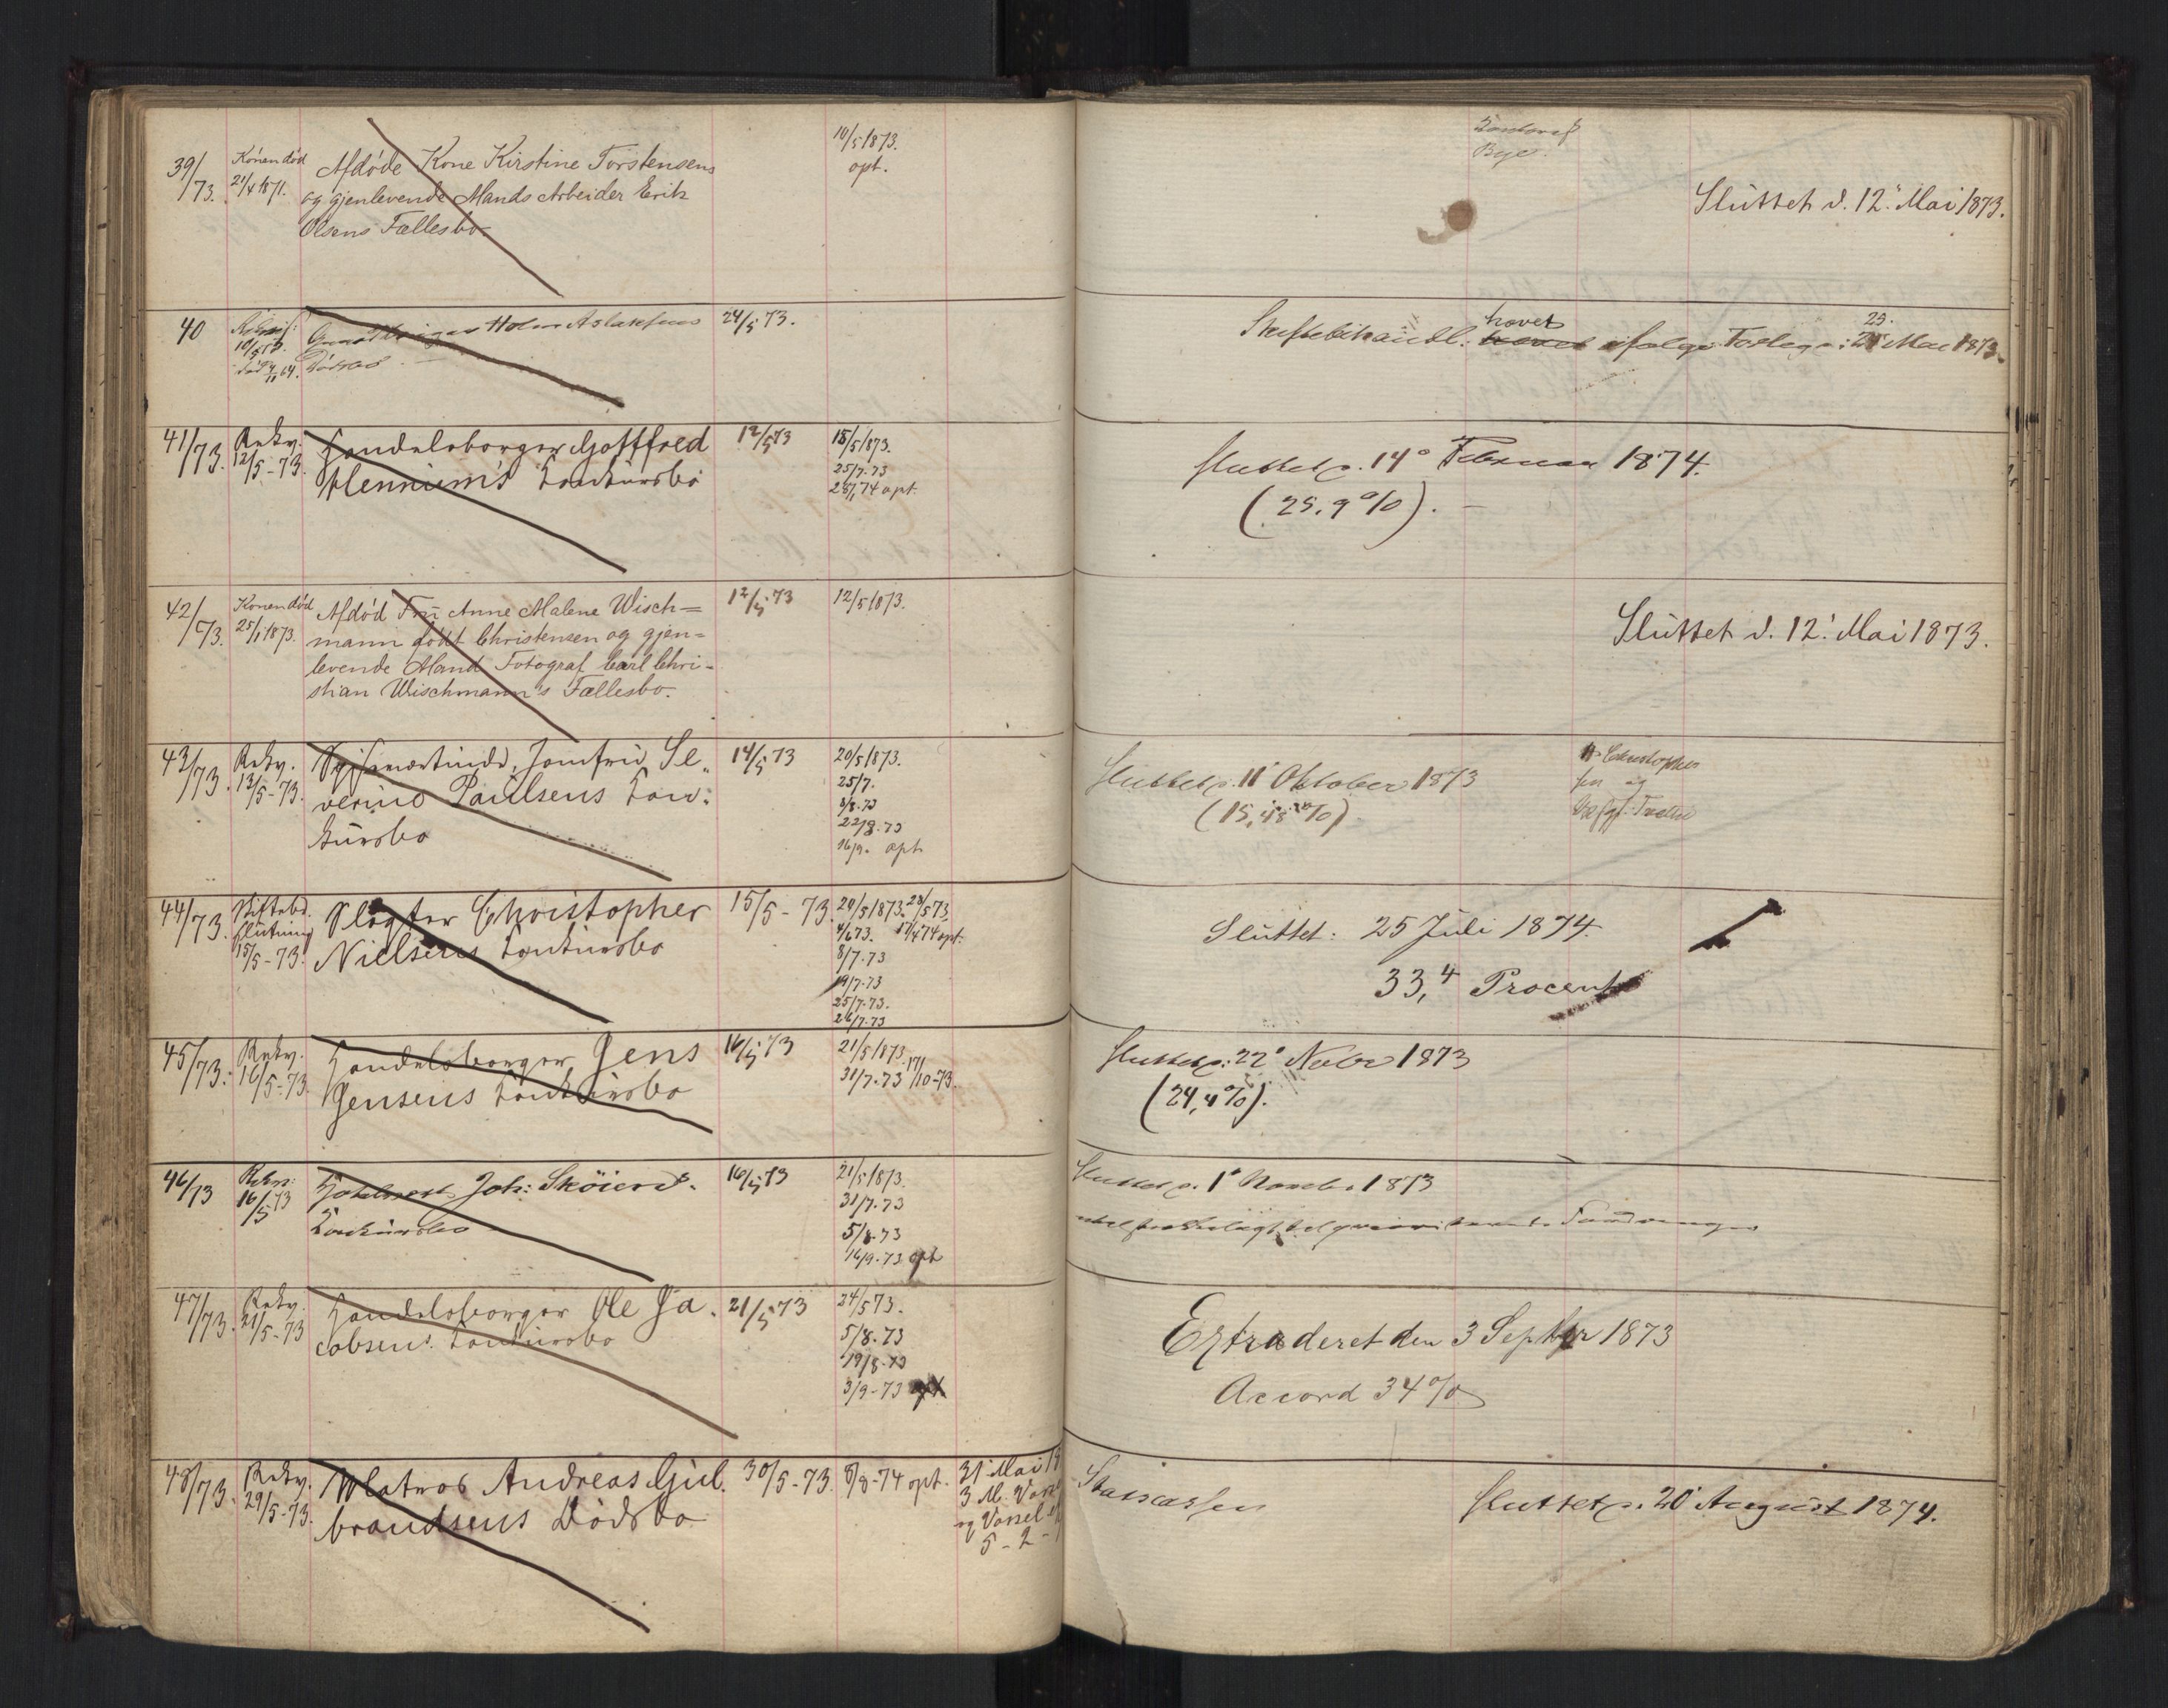 39/73.
Konen død
21/4 1871.
Afdøde Kone Kirstine Torstensens
og gjenlevende Mands Arbeider Erik
Olsens Fællesbo.
10/5 1873.
opt.
Bye.
Sluttet d. 12. Mai 1873.
40
10/5 73.
død
Holm Aslaksens
Dødsbo
24/5 73.
Skiftebehandl: hævet ifølge 23. Mai 1873.
41/73.
Rekv.
12/5-73.
Handelsborger Gottfred
Hennum's Konkursbo
12/5 73
15/5 1873.
25/7.73
28/1 74 opt.
Sluttet d. 14 Februar 1874.
(25,9 %).
42/73.
Konen død
25/1 1873.
Afdød Fru Anne Malene Wisch=
mann født Christensen og gjen=
levende Mand Fotograf Carl Chri-
stian Wischmann's Fællesbo.
12/5 73
12/5 1873.
Sluttet d. 12. Mai 1873.
43/73.
Rekv.
13/5-73.
Jomfru Se-
verine Paulsens Kon-
kursbo
14/5 73
20/5 1873.
25/7.
8/8.73
22/8.73
16/9. opt
Sluttet d. 11 Oktober 1873
Christopher
sen og
44/73.
Skiftebs.
slutning
15/5-73.
Slagter Christopher
Nielsens Konkursbo
15/5-73.
20/5 1873. 28/5 73.
4/6 73. 17/4 74 opt.
8/7.73
19/7.73
25/7.73.
26/7.73
Sluttet: 25 Juli 1874.
33,4 Procent
45/73.
Rekv.
16/5-73.
Handelsborger Jens
Jensens Konkursbo
16/5 73
21/5 1873.
31/7.73 17/10-73.
Sluttet d: 22 Novbr 1873
(24,4 %).
46/73
Rekv:
16/5 73
Joh: Skøiens
Konkursbo
16/5 73
21/5 1873.
31/7.73
5/8.73
16/9.73 opt
Sluttet d. 1 Novbr. 1873
47/73.
Rekv.
21/5-73
Handelsborger Ole Ja-
cobsens Konkursbo
21/5 73
24/5 73.
5/8.73
19/8.73
3/9-73 opt
Extraderet den 3 Septbr 1873
Accord 34 %
48/73.
Rekv.
29/5-73.
Matros Andreas Gul-
brandsens Dødsbo
30/5-73.
8/8-74 opt.
31 Mai 18
3 M.
og
5 - 2 -
Sluttet d. 20 August 1874.